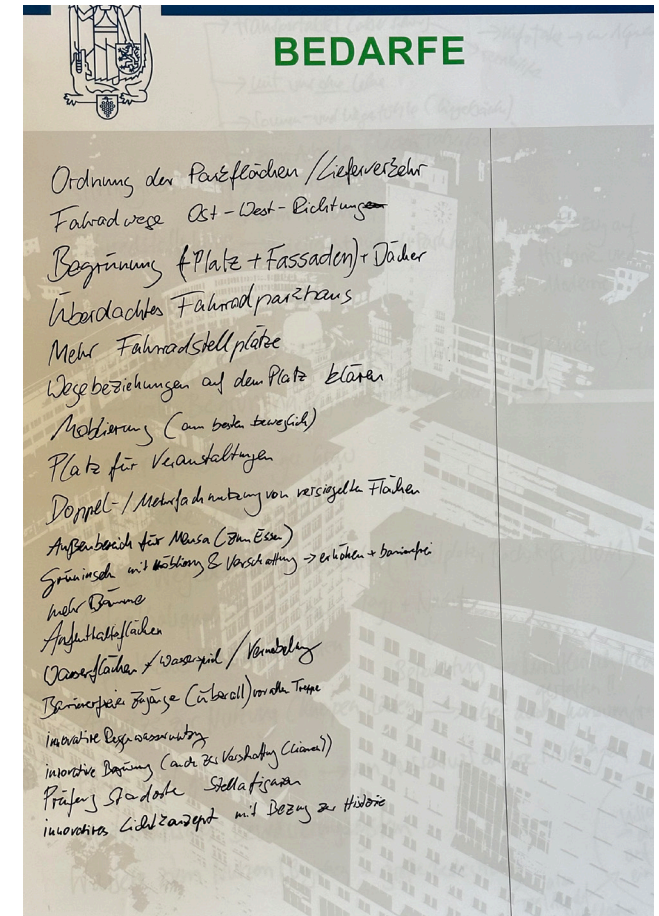 BEDARFE
Ordnung der Parkflächen / Lieferverkehr
Fahradwege Ost-West-Richtung
Begrünung (Platz + Fassaden) + Dächer
Überdachtes Fahrradparkhaus
Mehr Fahrradstellplätze
Wegebeziehungen auf dem Platz klären
Möblierung (am besten beweglich)
Platz für Veranstaltungen
Doppel-/Mehrfachnutzung von versiegelten Flächen
Außenbereich für Mensa (zum Essen)
Grüninseln mit Möblierung & Verschattung → erhöhen + barrierefrei
mehr Bäume
Aufenthaltsflächen
Wasserflächen / Wasserspiel / Vernebelung
Barrierefreie Zugänge (überall) vor allem Treppe
innovative Regenwassernutzung
innovative Begrünung (auch zur Verschattung (Lianen?))
Prüfung Standorte Stellafiguren
innovatives Lichtkonzept mit Bezug zur Historie